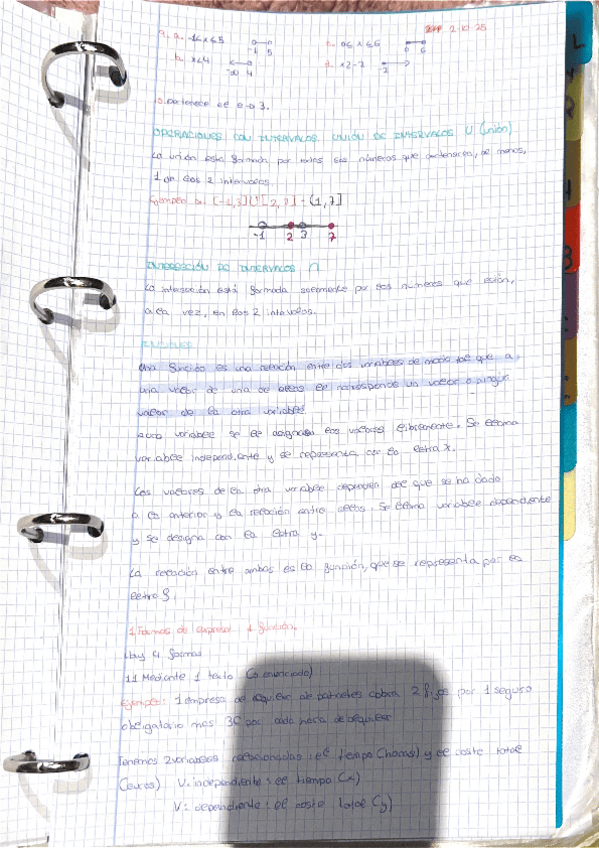 9. a. -1≤x≤5
-1 5
c. 0≤x≤6
0 6
2-10-25
b. x<4
-∞ 4
d. x>-2
-2
10. pertenece el e o 3.
OPERACIONES CON INTERVALOS. UNIÓN DE INTERVALOS U (unión)
La unión está formada por todos los números que pertenecen, al menos,
1 de los 2 intervalos.
Ejemplo U [2,7] = (1,7]
-1 2 3 7
INTERSECCIÓN DE INTERVALOS ∩
La intersección está formada solamente por los números que están,
a la vez, en los 2 intervalos.
FUNCIONES
Una función es una relación entre dos variables de modo tal que a
una valor de una de ellas le corresponde un valor o ningún
valor de la otra variable.
A una variable se le asignan los valores libremente. Se llama
variable independiente y se representa con la letra x.
Los valores de la otra variable dependen del que se ha dado
a la anterior y la relación entre ellas. Se llama variable dependiente
y se designa con la letra y.
La relación entre ambas es la función, que se representa por la
letra f.
1. Formas de expresar 1 función.
Hay 4 formas
1.1 Mediante 1 texto (o enunciado)
Ejemplo: 1 empresa de alquiler de patinetes cobra 2 fijos por 1 seguro
obligatorio mas 3€ por cada hora de alquiler
Tenemos 2 variables relacionadas: el tiempo (horas) y el coste total
(euros) V. independiente: el tiempo (x)
V: dependiente: el coste total (y)